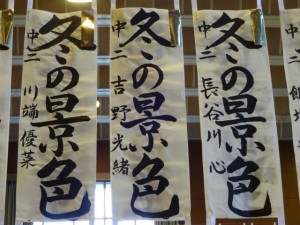 冬の景色
中二 川端優菜
冬の景色
中二 吉野光緒
冬の景色
中二 長谷川心